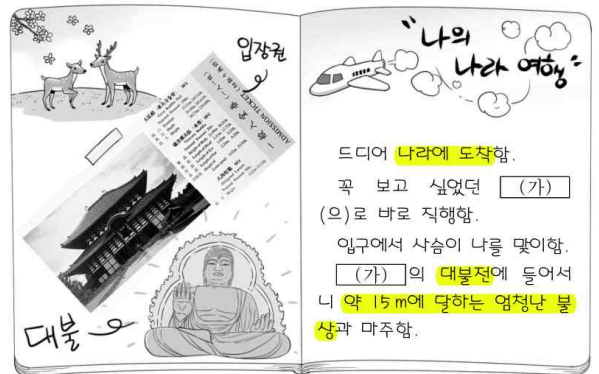 입장권
ADMISSION TICKET
대불
"나의
나라 여행"
드디어 나라에 도착함.
꼭 보고 싶었던 (가)
(으)로 바로 직행함.
입구에서 사슴이 나를 맞이함.
(가)의 대불전에 들어서
니 약 15m에 달하는 엄청난 불
상과 마주함.